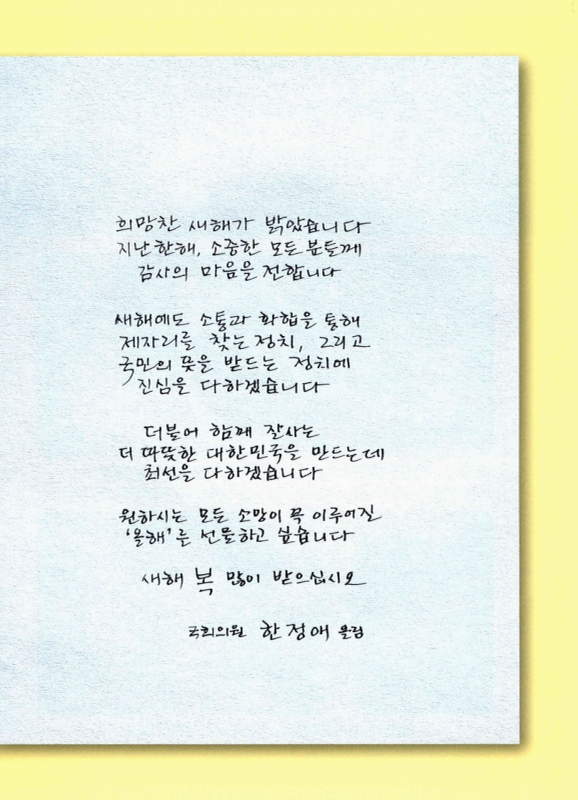 희망찬 새해가 밝았습니다
지난한해, 소중한 모든분들께
감사의 마음을 전합니다
새해에도 소통과 화합을 통해
제자리를 찾는 정치, 그리고
국민의 뜻을 받드는 정치에
진심을 다하겠습니다
더불어 함께 잘사는
더 따뜻한 대한민국을 만드는데
최선을 다하겠습니다
원하시는 모든 소망이 꼭 이루어질
'올해'를 선물하고 싶습니다
새해 복 많이 받으십시오
국회의원 한정애 올림